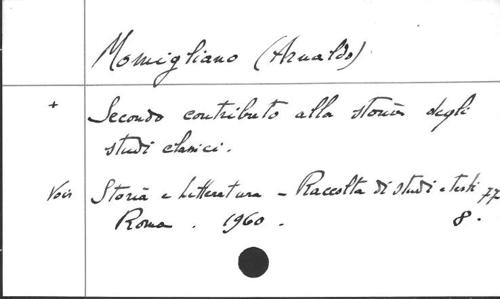 Momigliano (Arnaldo)
+ Secondo contributo alla storia degli
studi classici.
Voir Storia e Letteratura - Raccolta di studi e testi 77
Roma. 1960. 8.